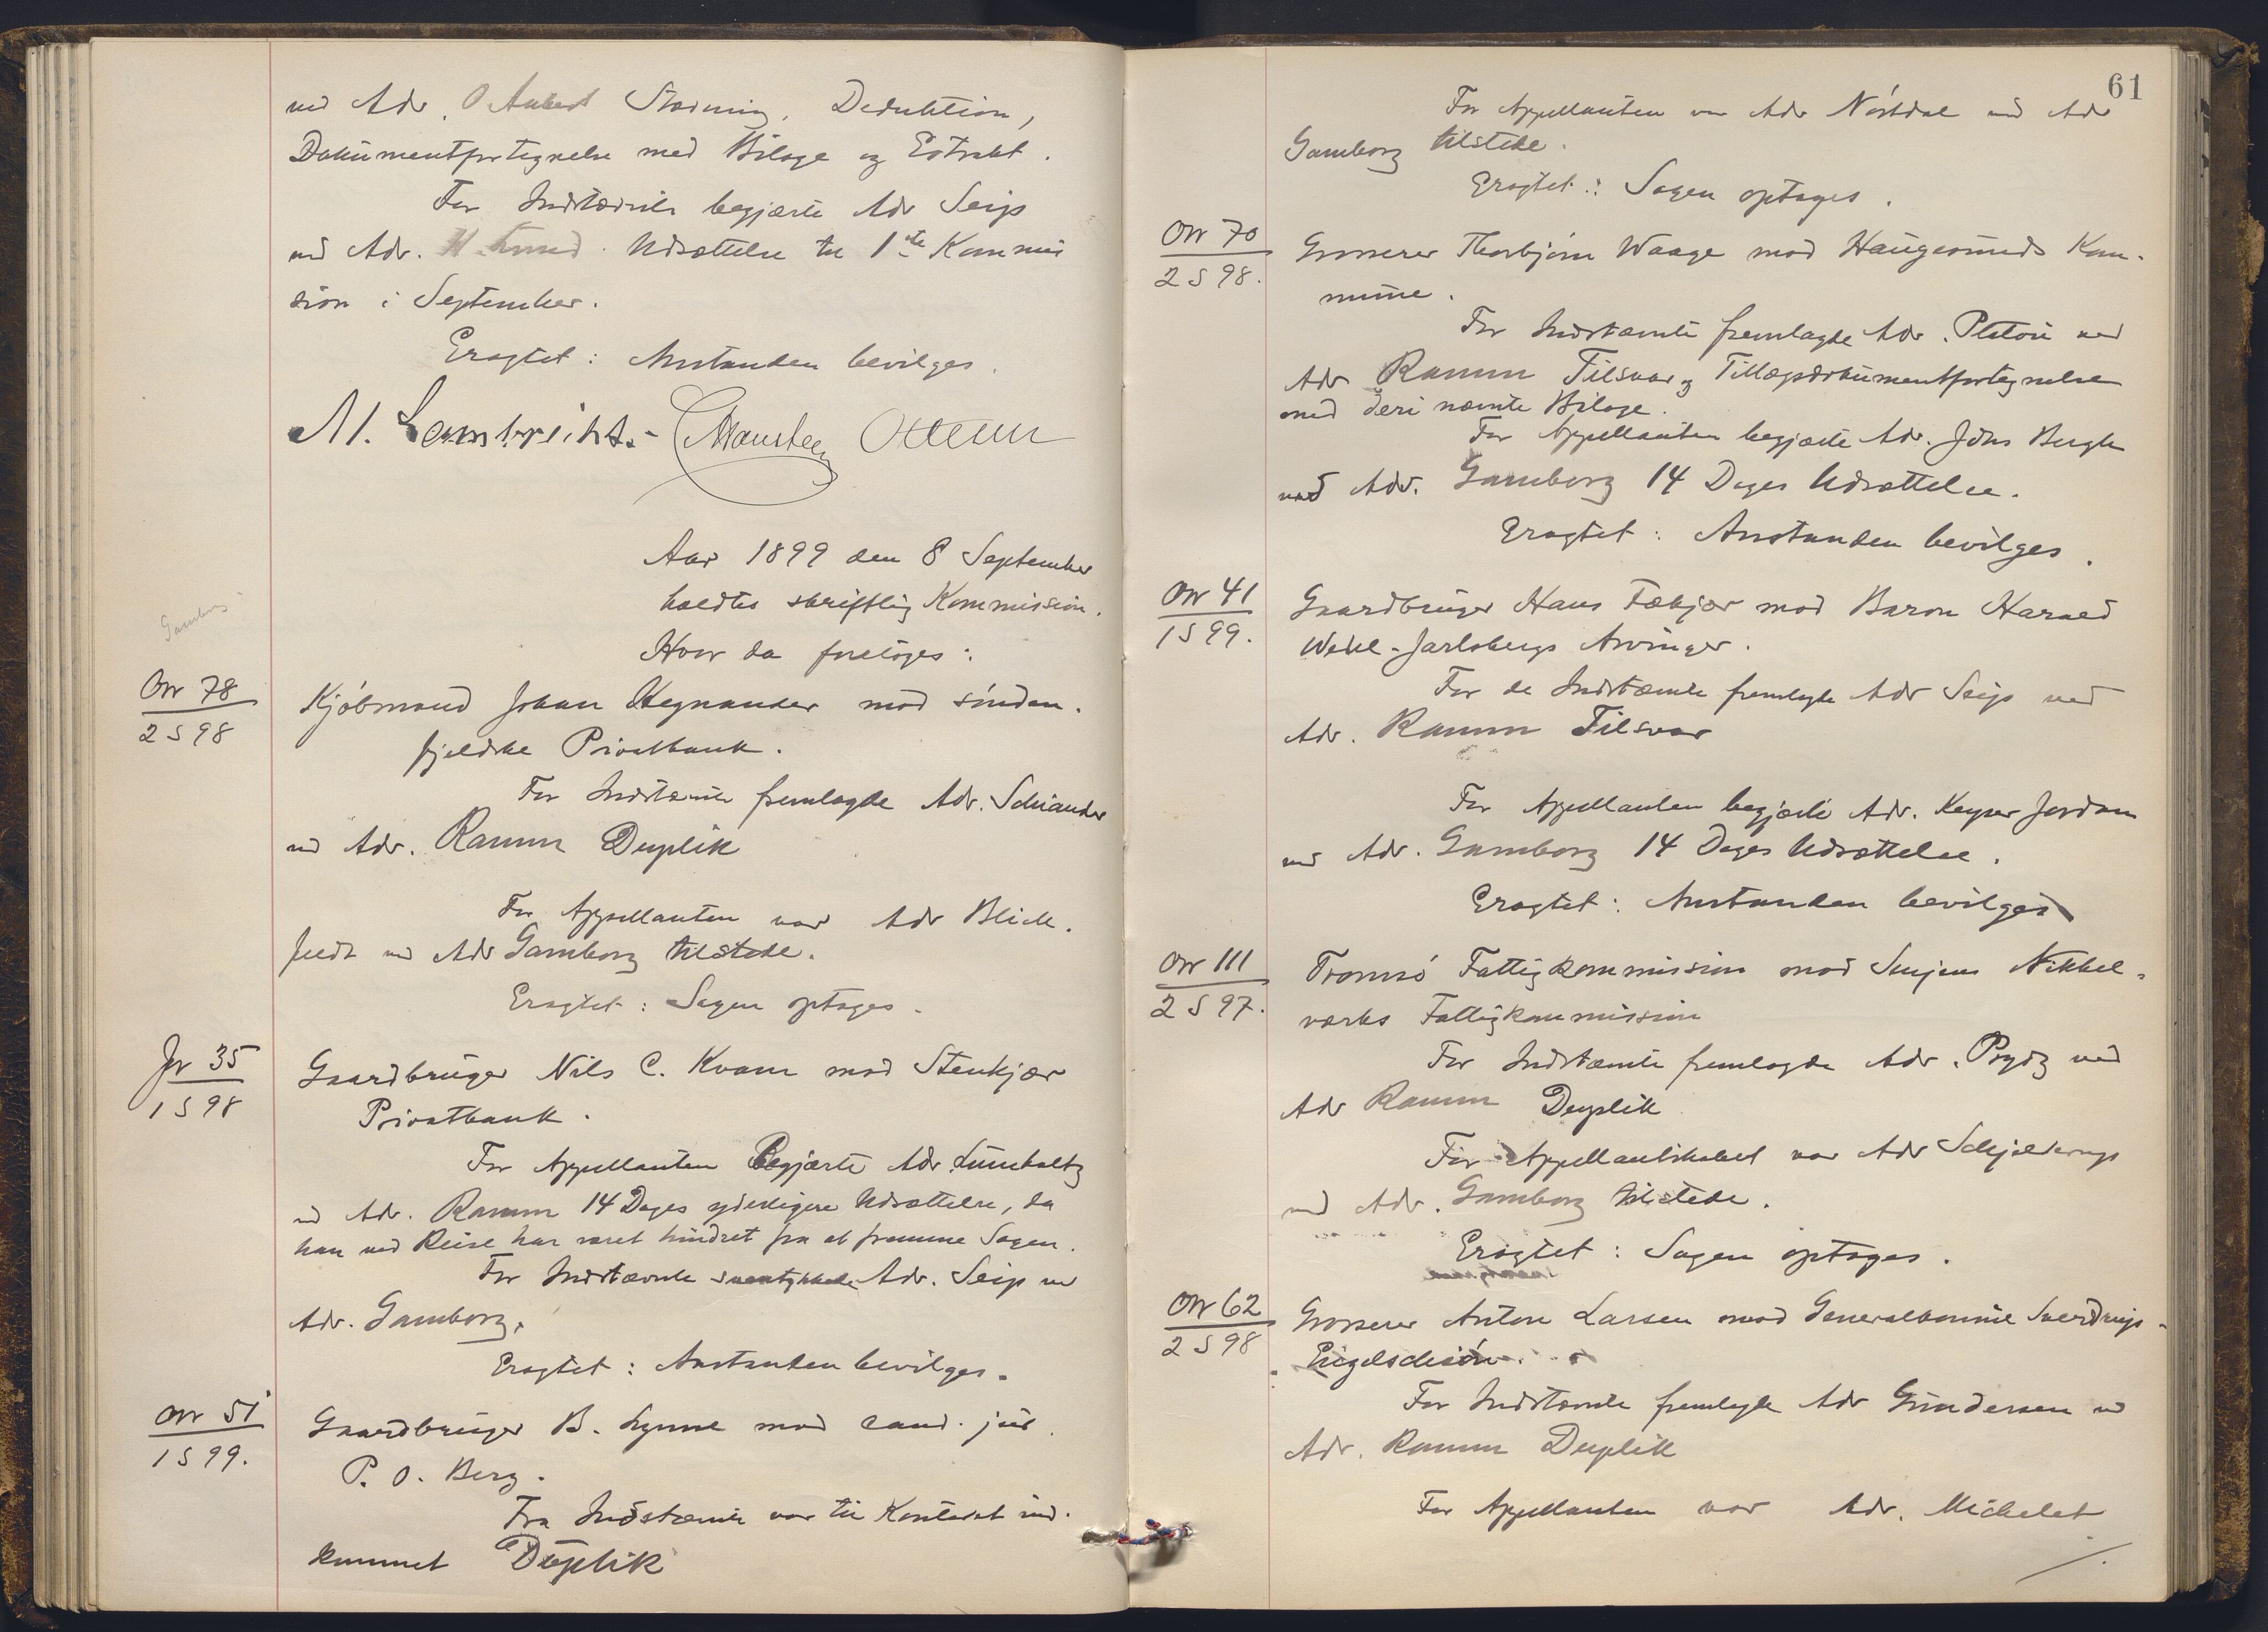 ved Adv. O Aubert Stævning, Deduktion,
Dokumentfortegnelse med Bilage og Extrakt.
For Indstævnte begjærte Adv Seip
ved Adv. Udsættelse til 1ste Kommis
sion i September.
Eragtet: Anstanden bevilges.
M. Lambrechts.
Aar 1899 den 8 September
holdtes skriftlig Kommission.
Hvor da foretoges:
Gamborg
Or 78
2 S 98
Kjøbmand Johan Hegnander mod sønden-
fjeldske Privatbank.
For Indstævnte fremlagde Adv. Schiander
ved Adv. Ramm Duplik
For Appellanten var Adv Blich-
feldt ved Adv Gamborg tilstede.
Eragtet: Sagen optages.
Jr 35
1 S 98
Gaardbruger Nils C. Kvam mod Stenkjær
Privatbank.
For Appellanten begjærte Adv Lumholtz
ved Adv. Ramm 14 Dages yderligere Udsættelse, da
han ved Reise har været hindret fra at fremme Sagen.
For Indstævnte samtykkede Adv. Seip ved
Adv. Gamborg.
Eragtet: Anstanden bevilges.
Or 51
1 S 99.
Gaardbruger B. Lynne mod cand. jur.
P. O. Berg.
Fra Indstævnte var til Kontoret ind-
kommet Duplik
61
For Appellanten var Adv Nørdal ved Adv
Gamborg tilstede.
Eragtet: Sagen optages.
Or 70
2 S 98.
Grosserer Thorbjørn Waage mod Haugesunds Kom-
mune.
For Indstævnte fremlagde Adv. Platou ved
Adv Ramm Tilsvar og Tillægsdokumentfortegnelse
med deri nævnte Bilage.
For Appellanten begjærte Adv. Johs Bergh
ved Adv. Gamborg 14 Dages Udsættelse.
Eragtet: Anstanden bevilges.
Or 41
1 S 99.
Gaardbruger Hans Fækjær mod Baron Harald
Wedel-Jarlsbergs Arvinger.
For de Indstævnte fremlagde Adv Seip ved
Adv. Ramm Tilsvar
For Appellanten begjærte Adv. Keyser Jordan
ved Adv. Gamborg 14 Dages Udsættelse.
Eragtet: Anstanden bevilges
Or 111
2 S 97.
Tromsø Fattigkommission mod Senjens Nikkel-
værks Fattigkommission
For Indstævnte fremlagde Adv. Prydz ved
Adv Ramm Duplik
For Appellantskabet var Adv Schjelderup
ved Adv. Gamborg tilstede.
Eragtet: Sagen optages.
Or 62
2 S 98
Grosserer Anton Larsen mod Generalkonsul Sverdrup-
Engelschiøn.
For Indstævnte fremlagde Adv Gundersen ved
Adv. Ramm Duplik
For Appellanten var Adv. Michelet